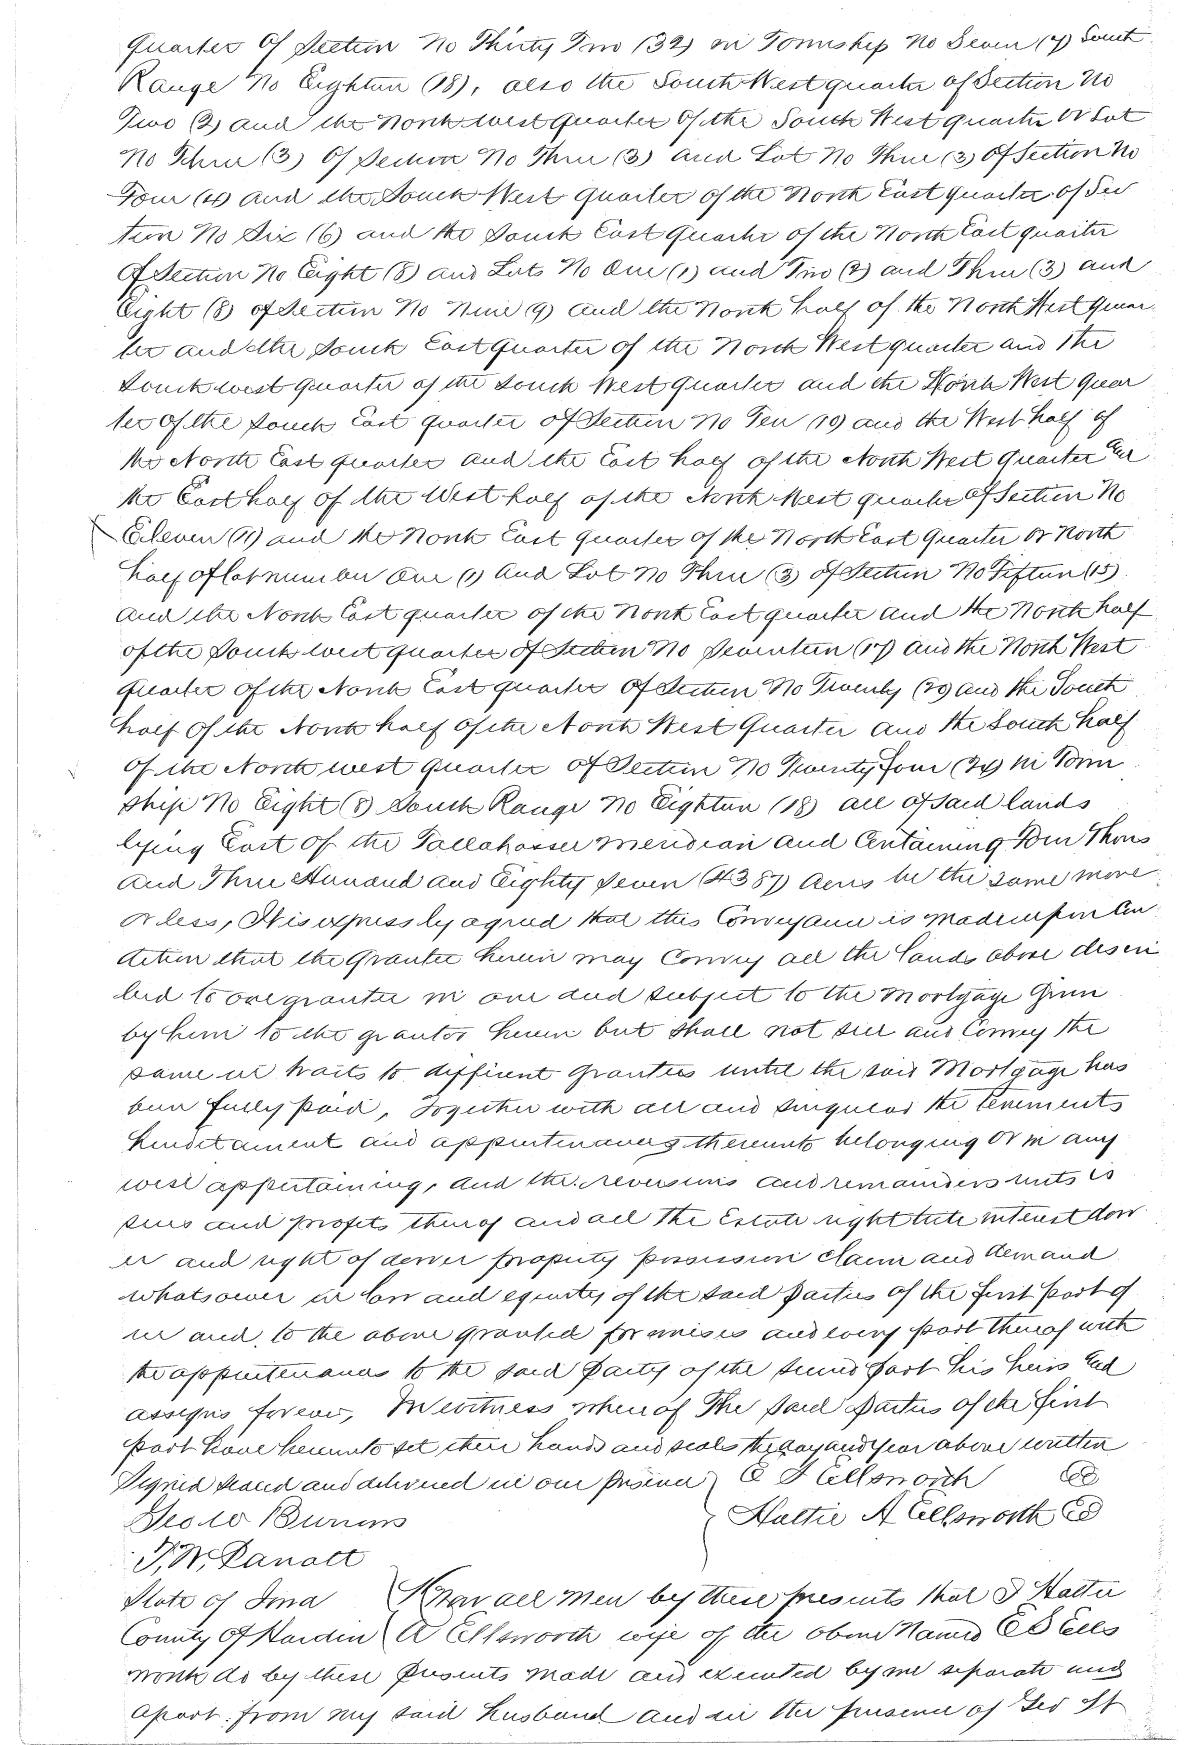 quarter of Section No Thirty Two (32) in Township No Seven (7) South
Range No Eighteen (18), also the South West quarter of Section No
Two (2) and the North West quarter of the South West quarter or Lot
No Three (3) of Section No Three (3) and Lot No Three (3) of Section No
Four (4) and the South West quarter of the North East quarter of Sec
tion No Six (6) and the South East quarter of the North East quarter
of Section No Eight (8) and Lots No One (1) and Two (2) and Three (3) and
Eight (8) of Section No Nine (9) and the North half of the North West quar
ter and the South East quarter of the North West quarter and the
South west quarter of the South West quarter and the North West quar
ter of the South East quarter of Section No Ten (10) and the West half of
the North East quarter and the East half of the North West quarter and
the East half of the West half of the North West quarter of Section No
Eleven (11) and the North East quarter of the North East quarter or North
half of lot number One (1) and Lot No Three (3) of Section No Fifteen (15)
and the North East quarter of the North East quarter and the North half
of the South west quarter of Section No Seventeen (17) and the North West
quarter of the North East quarter of Section No Twenty (20) and the South
half of the North half of the North West Quarter and the South half
of the North west quarter of Section No Twenty four (24) in Town
ship No Eight (8) South Range No Eighteen (18) all of said lands
lying East of the Tallahassee Meridian and Containing Four Thous
and Three Hundred and Eighty Seven (4387) Acres be the same more
or less, It is expressly agreed that this Conveyance is made upon Con
dition that the Grantee herein may Convey all the lands above descri
bed to one grantee in one deed subject to the Mortgage Given
by him to the grantor herein but shall not sell and Convey the
same in tracts to different Grantees until the said Mortgage has
been fully paid, Together with all and singular the tenements
hereditament and appurtenances thereunto belonging or in any
wise appertaining, and the reversions and remainders rents is
sues and profits thereof and all the Estate right title interest dow
er and right of dower property possession claim and demand
whatsoever in law and equity of the said parties of the first part of
in and to the above granted premises and every part thereof with
the appurtenances to the said party of the second part his heirs and
assigns forever, In witness whereof The said parties of the first
part have hereunto set their hands and seals the day and year above written
Signed sealed and delivered in our presence E S Ellsworth
Geo W Burrows Hattie A Ellsworth
T. W.
State of Iowa Know all Men by these presents that I Hattie
County of Hardin A Ellsworth wife of the above Named E S Ells
worth do by these presents made and executed by me separate and
apart from my said husband and in the presence of Geo